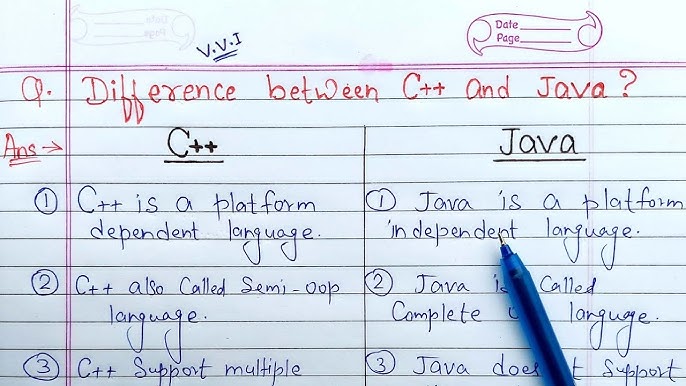 Date
Page
V.V.I
Q. Difference between C++ and Java?
Ans →
C++
① C++ is a platform
dependent language.
② C++ also Called Semi-oop
language.
③ C++ Support multiple
Java
① Java is a platform
independent language.
② Java is Called
Complete language.
③ Java Support